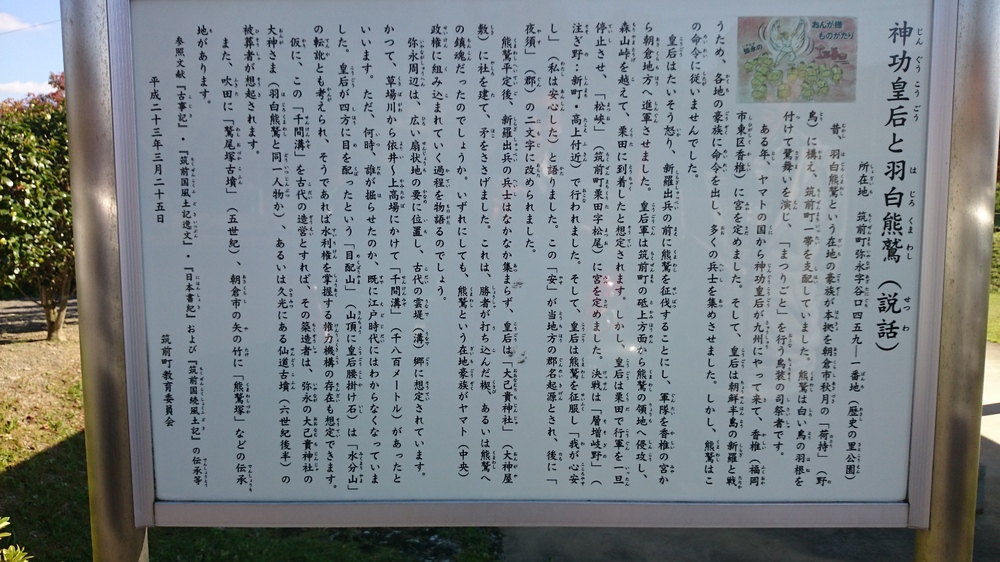 神功皇后と羽白熊鷲（説話）
所在地　筑前町弥永字谷口四五九―一番地（歴史の里公園）
おんが様
ものがたり
昔、羽白熊鷲という在地の豪族が本拠を朝倉市秋月の「荷持」（野
鳥）に構え、筑前町一帯を支配していました。熊鷲は白い鳥の羽根を
付けて鷲舞いを演じ、「まつりごと」を行う鳥装の司祭者です。
ある年、ヤマトの国から神功皇后が九州にやって来て、香椎（福岡
市東区香椎）に宮を定めました。そして、皇后は朝鮮半島の新羅と戦
うため、各地の豪族に命令を出し、多くの兵士を集めさせました。しかし、熊鷲はこ
の命令に従いませんでした。
皇后はたいそう怒り、新羅出兵の前に熊鷲を征伐することにし、軍隊を香椎の宮か
ら朝倉地方へ進軍させました。皇后軍は筑前町の砥上方面から熊鷲の領地へ侵攻し、
森山峠を越えて、栗田に到着したと想定されます。しかし、皇后は栗田で行軍を一旦
停止させ、「松峡」（筑前町栗田字松尾）に宮を定めました。決戦は「層増岐野」（
注：野・新町・高上付近）で行われました。そして、皇后は熊鷲を征服し「我が心安
し」（私は安心した）と語りました。この「安」が当地方の郡名起源とされ、後に「
夜須」（郡）の二文字に改められました。
熊鷲平定後、新羅出兵の兵士はなかなか集まらず、皇后は「大己貴神社」（大神屋
敷）に社を建て、矛をささげました。これは、勝者が打ち込んだ楔、あるいは熊鷲へ
の鎮魂だったのでしょうか。いずれにしても、熊鷲という在地豪族がヤマト（中央）
政権に組み込まれていく過程を物語るのでしょう。
弥永周辺は、広い扇状地の要に位置し、古代の雲堤（溝）郷に想定されています。
かつて、草場川から依井～上高場にかけて「千間溝」（千八百メートル）があったと
いいます。ただ、何時、誰が掘らせたのか、既に江戸時代にはわからなくなっていま
した。皇后が四方に目を配ったという「目配山」（山頂に皇后腰掛け石）は「水分山」
の転訛とも考えられ、そうであれば水利権を掌握する権力機構の存在も想定できます。
仮に、この「千間溝」を古代の造営とすれば、その築造者は、弥永の大己貴神社の
大神さま（羽白熊鷲と同一人物か）、あるいは久光にある仙道古墳（六世紀後半）の
被葬者が想起されます。
また、吹田に「鷲尾塚古墳」（五世紀）、朝倉市の矢の竹に「熊鷲塚」などの伝承
地があります。
参照文献『古事記』・『筑前国風土記逸文』・『日本書紀』および『筑前国続風土記』の伝承等
平成二十三年三月二十五日
筑前町教育委員会